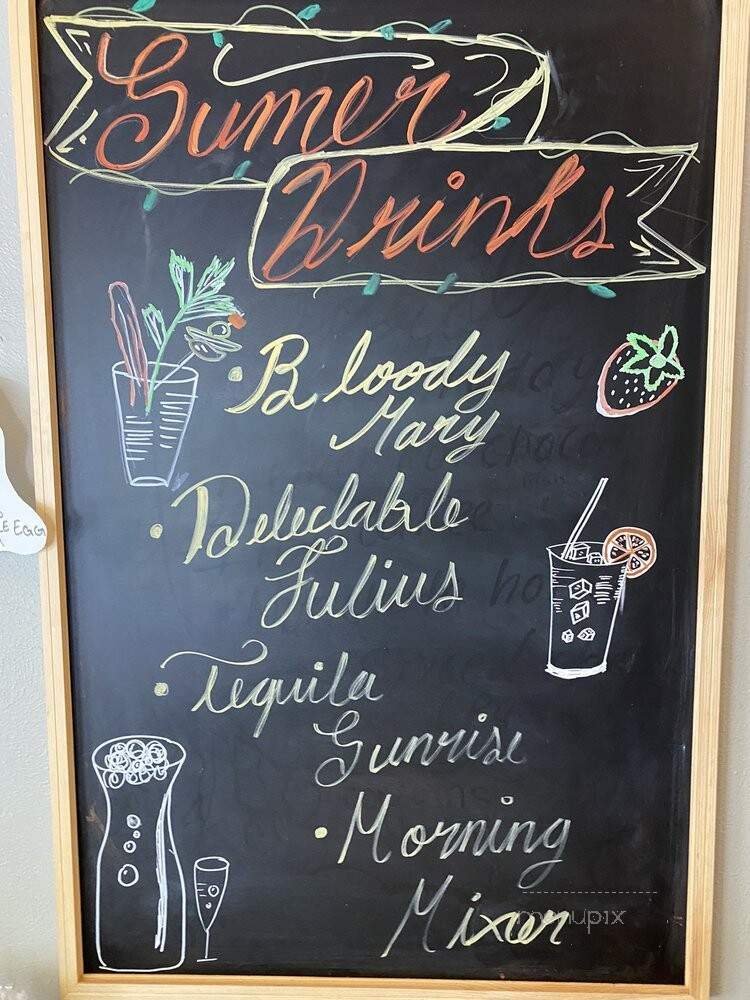 Sumer
Drinks
• Bloody
Mary
• Delectable
Julius
• Tequila
Sunrise
• Morning
Mixer
EGG
menupix